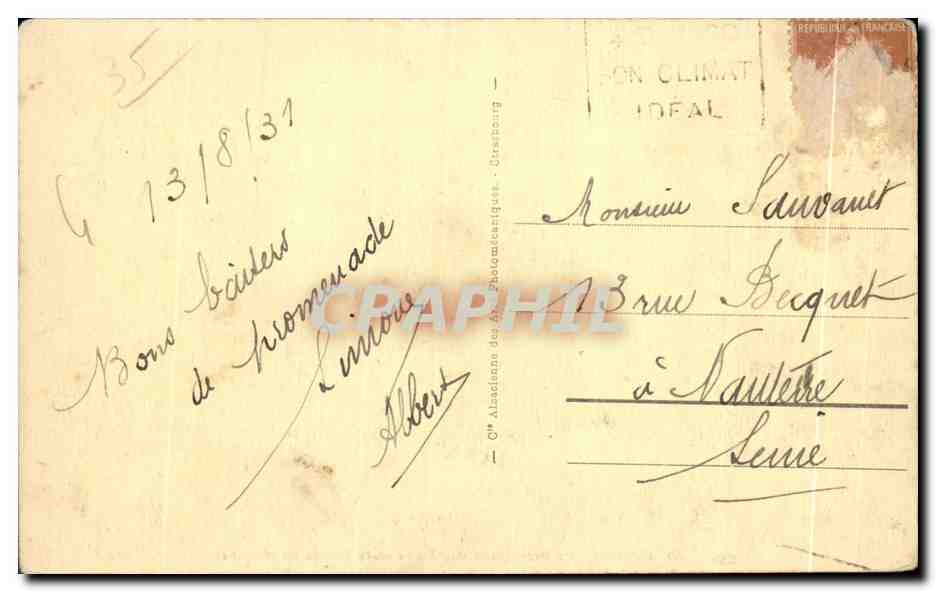 35
13/8/31
Bons baisers
de promenade
Simone
Albert
Cie Alsacienne des Arts Photomécaniques. - Strasbourg
SON CLIMAT
IDÉAL
REPUBLIQUE FRANÇAISE
Monsieur Sauvanet
13 rue Becquet
à Nanterre
Seine
CPARAMA